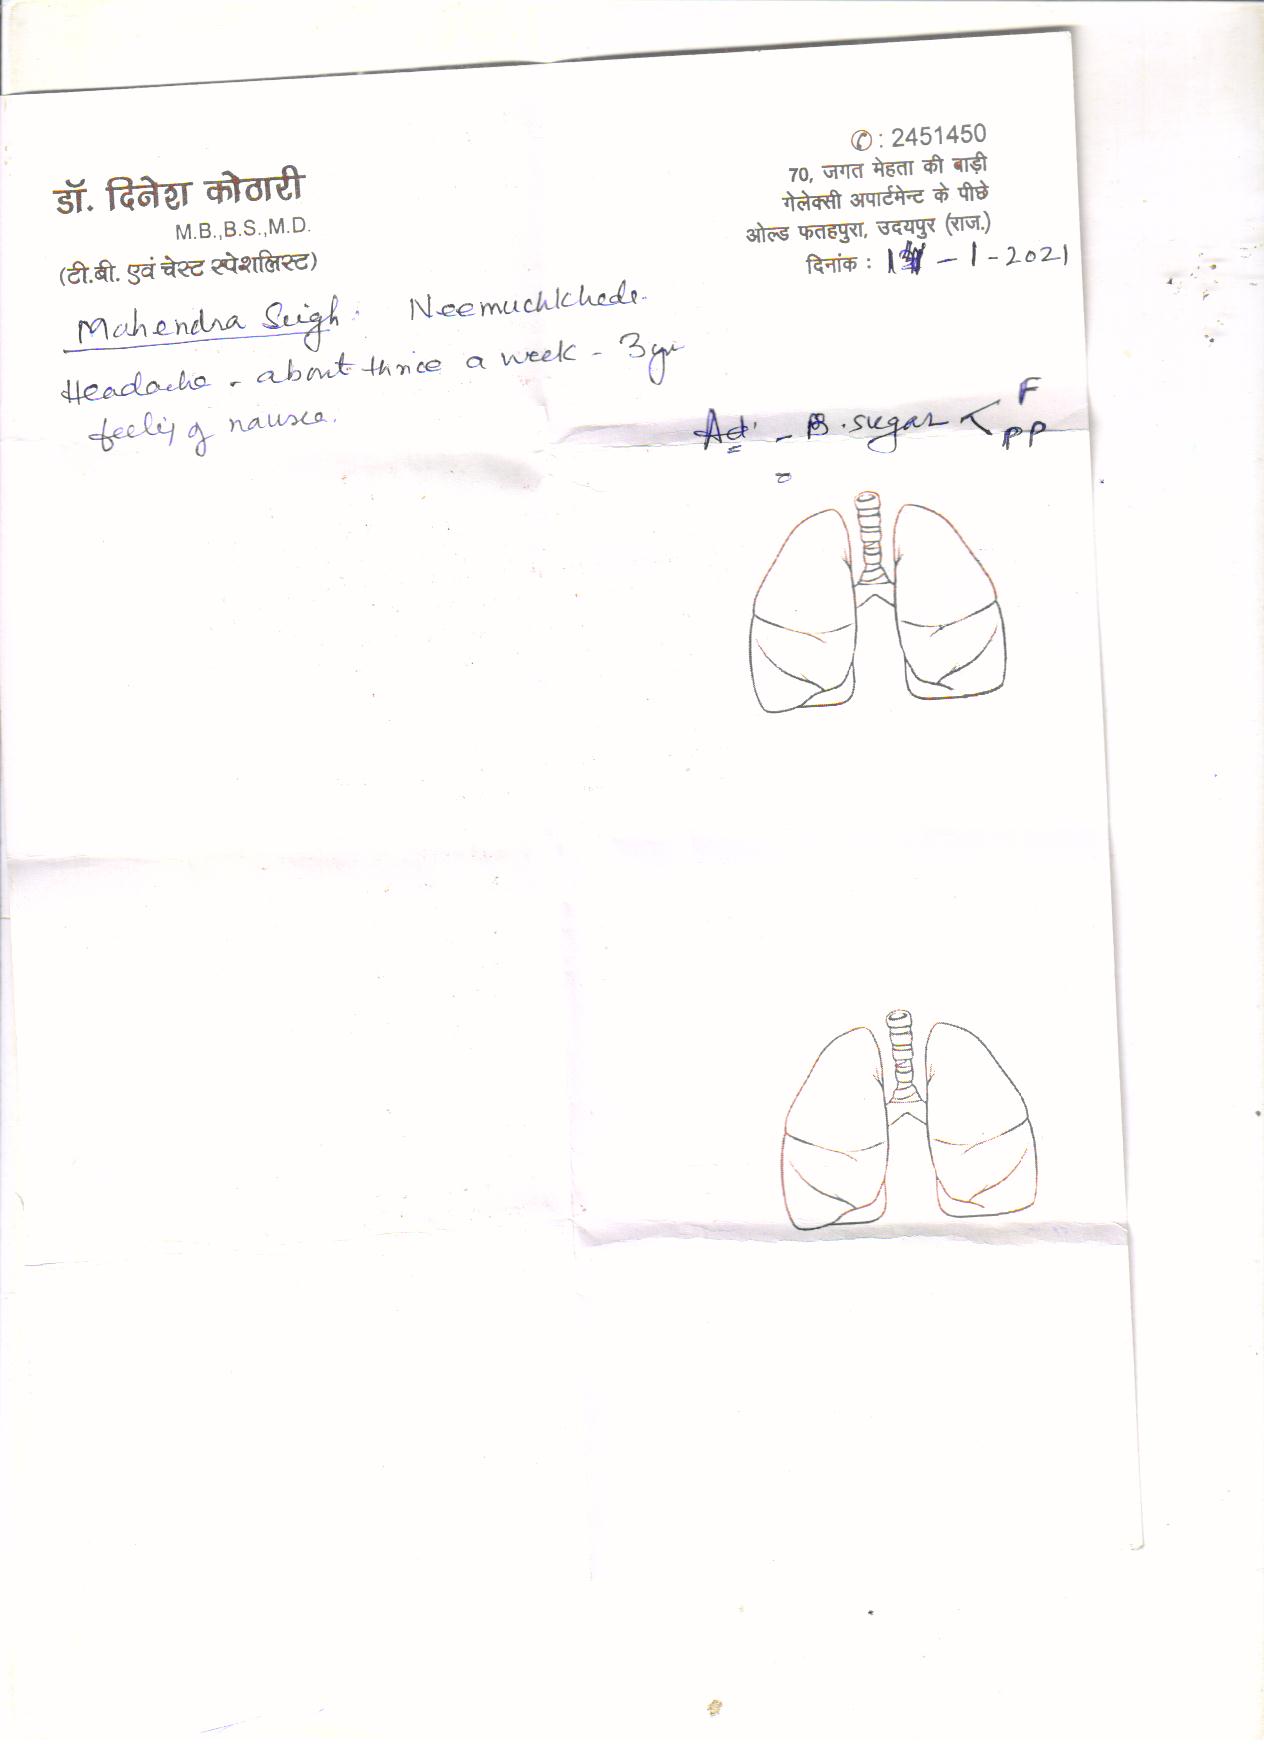 ✆ : 2451450
70, जगत मेहता की बाड़ी
गेलेक्सी अपार्टमेन्ट के पीछे
ओल्ड फतहपुरा, उदयपुर (राज.)
दिनांक : - 1 - 2021
डॉ. दिनेश कोठारी
M.B.,B.S.,M.D.
(टी.बी. एवं चेस्ट स्पेशलिस्ट)
Mahendra Singh. Neemuchkheda.
Headache - about thrice a week - 3 yr
feeling of nausea.
Ad' - B. sugar < F
PP